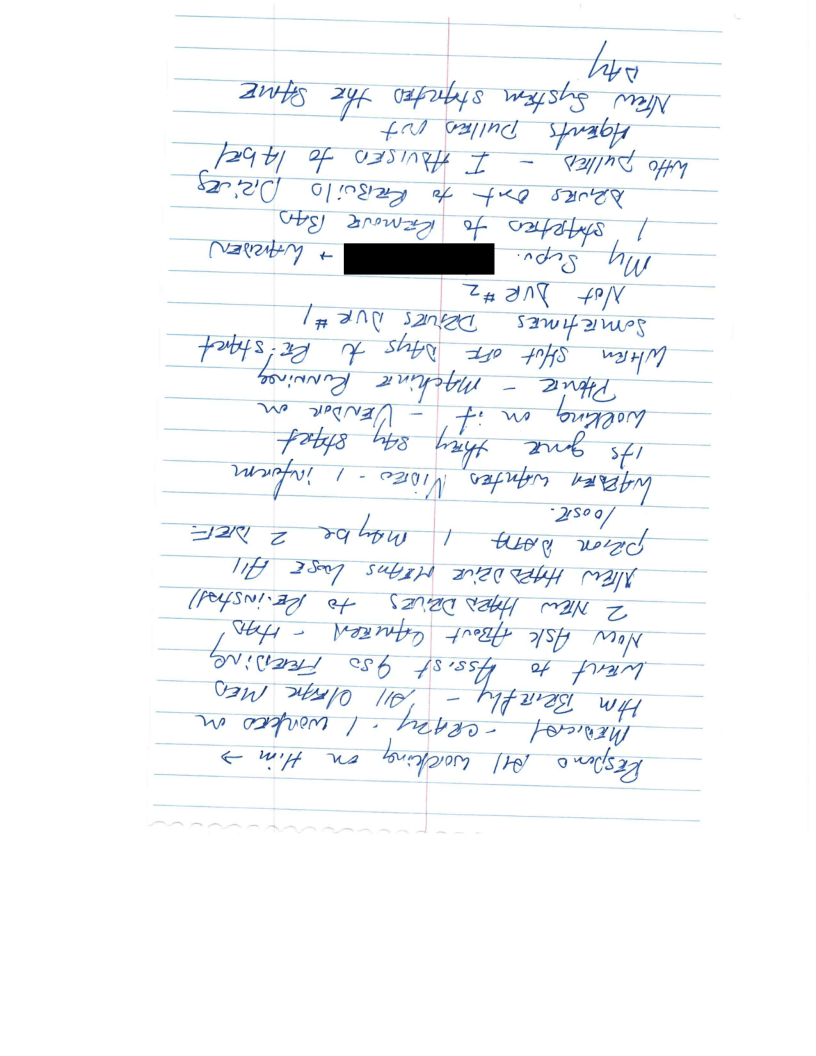 Respond All working on Him →
Medical - crazy - I worked on
Him Briefly - All over me
Went to Assist 9so Feeding
Now Ask About Camera - HAD
2 new HARD Drives to Re-install
New Hardrive MEANS Lose All
prior DATA I maybe 2 DEF.
loose.
WARDEN WANTED Video - I inform
its gone they say start
Working on it - Vendor on
Phone - Machine Running
When shut off DAYS to Re-start
Sometimes Drives DVR #1
Not DVR #2
My Supv. + WARDEN
I started to Remove BAD
Drives Out to Rebuild Drives
Who pulled - I Advised to label
Agents pulled out
New System started the same
DAY